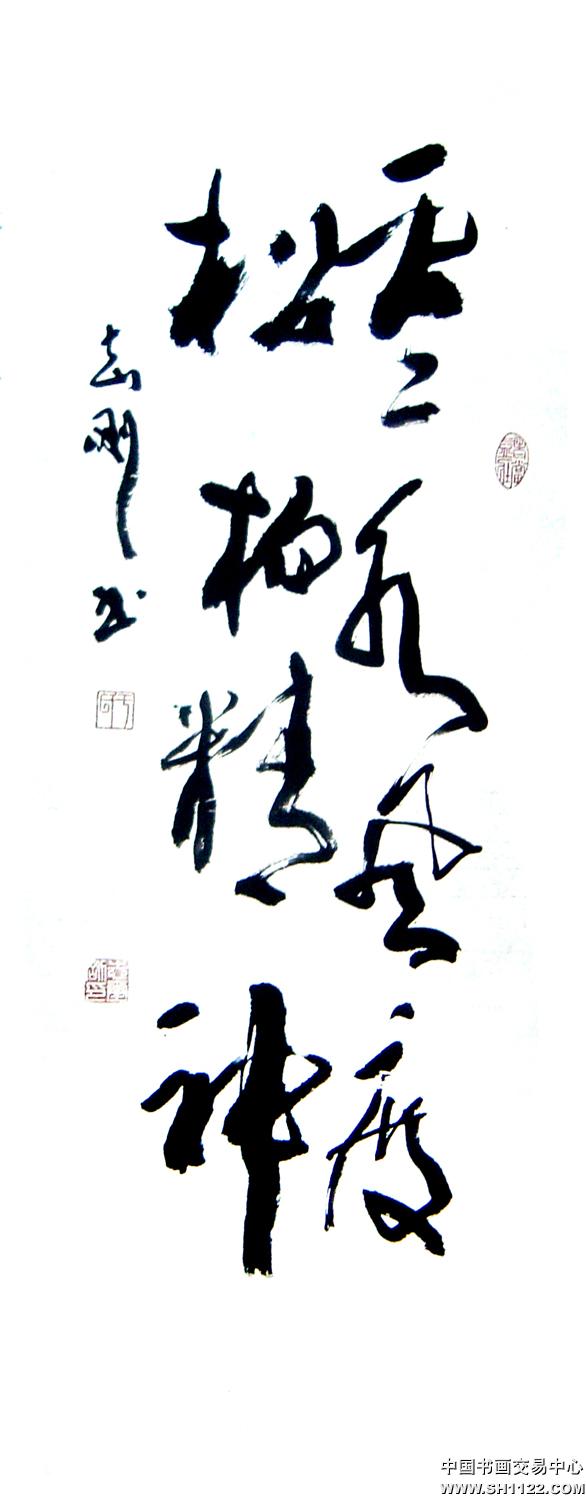 雲水風度
松柏精神
志刚书
中国书画交易中心
WWW.SH1122.COM